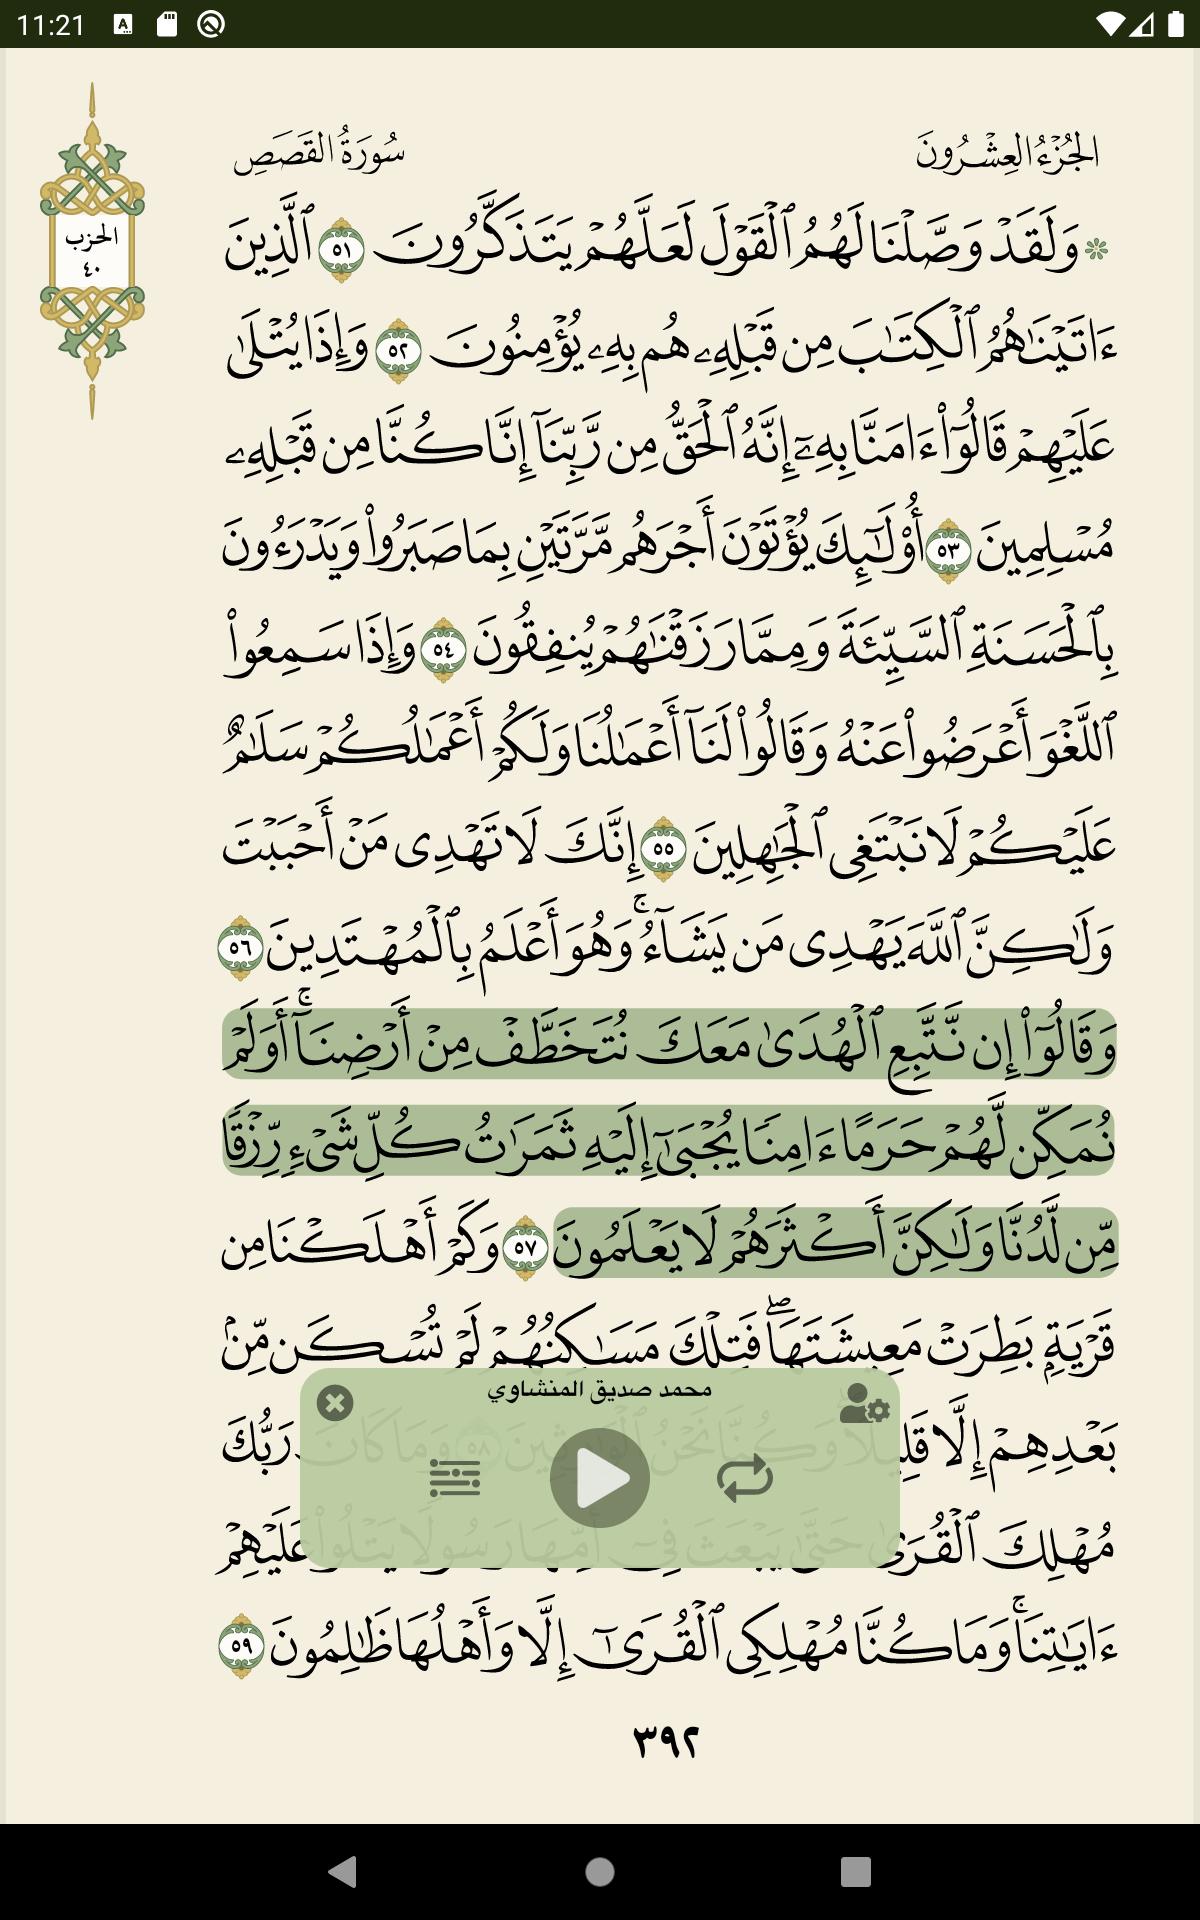 11:21
الجُزْءُ العِشْرُونَ
سُورَةُ القَصَصِ
الحزب
٤٠
۞ وَلَقَدۡ وَصَّلۡنَا لَهُمُ ٱلۡقَوۡلَ لَعَلَّهُمۡ يَتَذَكَّرُونَ ٥١ ٱلَّذِينَ
ءَاتَيۡنَٰهُمُ ٱلۡكِتَٰبَ مِن قَبۡلِهِۦ هُم بِهِۦ يُؤۡمِنُونَ ٥٢ وَإِذَا يُتۡلَىٰ
عَلَيۡهِمۡ قَالُوٓاْ ءَامَنَّا بِهِۦٓ إِنَّهُ ٱلۡحَقُّ مِن رَّبِّنَآ إِنَّا كُنَّا مِن قَبۡلِهِۦ
مُسۡلِمِينَ ٥٣ أُوْلَٰٓئِكَ يُؤۡتَوۡنَ أَجۡرَهُم مَّرَّتَيۡنِ بِمَا صَبَرُواْ وَيَدۡرَءُونَ
بِٱلۡحَسَنَةِ ٱلسَّيِّئَةَ وَمِمَّا رَزَقۡنَٰهُمۡ يُنفِقُونَ ٥٤ وَإِذَا سَمِعُواْ
ٱللَّغۡوَ أَعۡرَضُواْ عَنۡهُ وَقَالُواْ لَنَآ أَعۡمَٰلُنَا وَلَكُمۡ أَعۡمَٰلُكُمۡ سَلَٰمٌ
عَلَيۡكُمۡ لَا نَبۡتَغِي ٱلۡجَٰهِلِينَ ٥٥ إِنَّكَ لَا تَهۡدِي مَنۡ أَحۡبَبۡتَ
وَلَٰكِنَّ ٱللَّهَ يَهۡدِي مَن يَشَآءُۚ وَهُوَ أَعۡلَمُ بِٱلۡمُهۡتَدِينَ ٥٦
وَقَالُوٓاْ إِن نَّتَّبِعِ ٱلۡهُدَىٰ مَعَكَ نُتَخَطَّفۡ مِنۡ أَرۡضِنَآۚ أَوَلَمۡ
نُمَكِّن لَّهُمۡ حَرَمًا ءَامِنٗا يُجۡبَىٰٓ إِلَيۡهِ ثَمَرَٰتُ كُلِّ شَيۡءٖ رِّزۡقٗا
مِّن لَّدُنَّا وَلَٰكِنَّ أَكۡثَرَهُمۡ لَا يَعۡلَمُونَ ٥٧ وَكَمۡ أَهۡلَكۡنَا مِن
قَرۡيَةِۭ بَطِرَتۡ مَعِيشَتَهَاۖ فَتِلۡكَ مَسَٰكِنُهُمۡ لَمۡ تُسۡكَن مِّنۢ
محمد صديق المنشاوي
بَعۡدِهِمۡ إِلَّا قَلِيلٗاۖ وَكُنَّا نَحۡنُ ٱلۡوَٰرِثِينَ ٥٨ وَمَا كَانَ رَبُّكَ
مُهۡلِكَ ٱلۡقُرَىٰ حَتَّىٰ يَبۡعَثَ فِيٓ أُمِّهَا رَسُولٗا يَتۡلُواْ عَلَيۡهِمۡ
ءَايَٰتِنَاۚ وَمَا كُنَّا مُهۡلِكِي ٱلۡقُرَىٰٓ إِلَّا وَأَهۡلُهَا ظَٰلِمُونَ ٥٩
٣٩٢